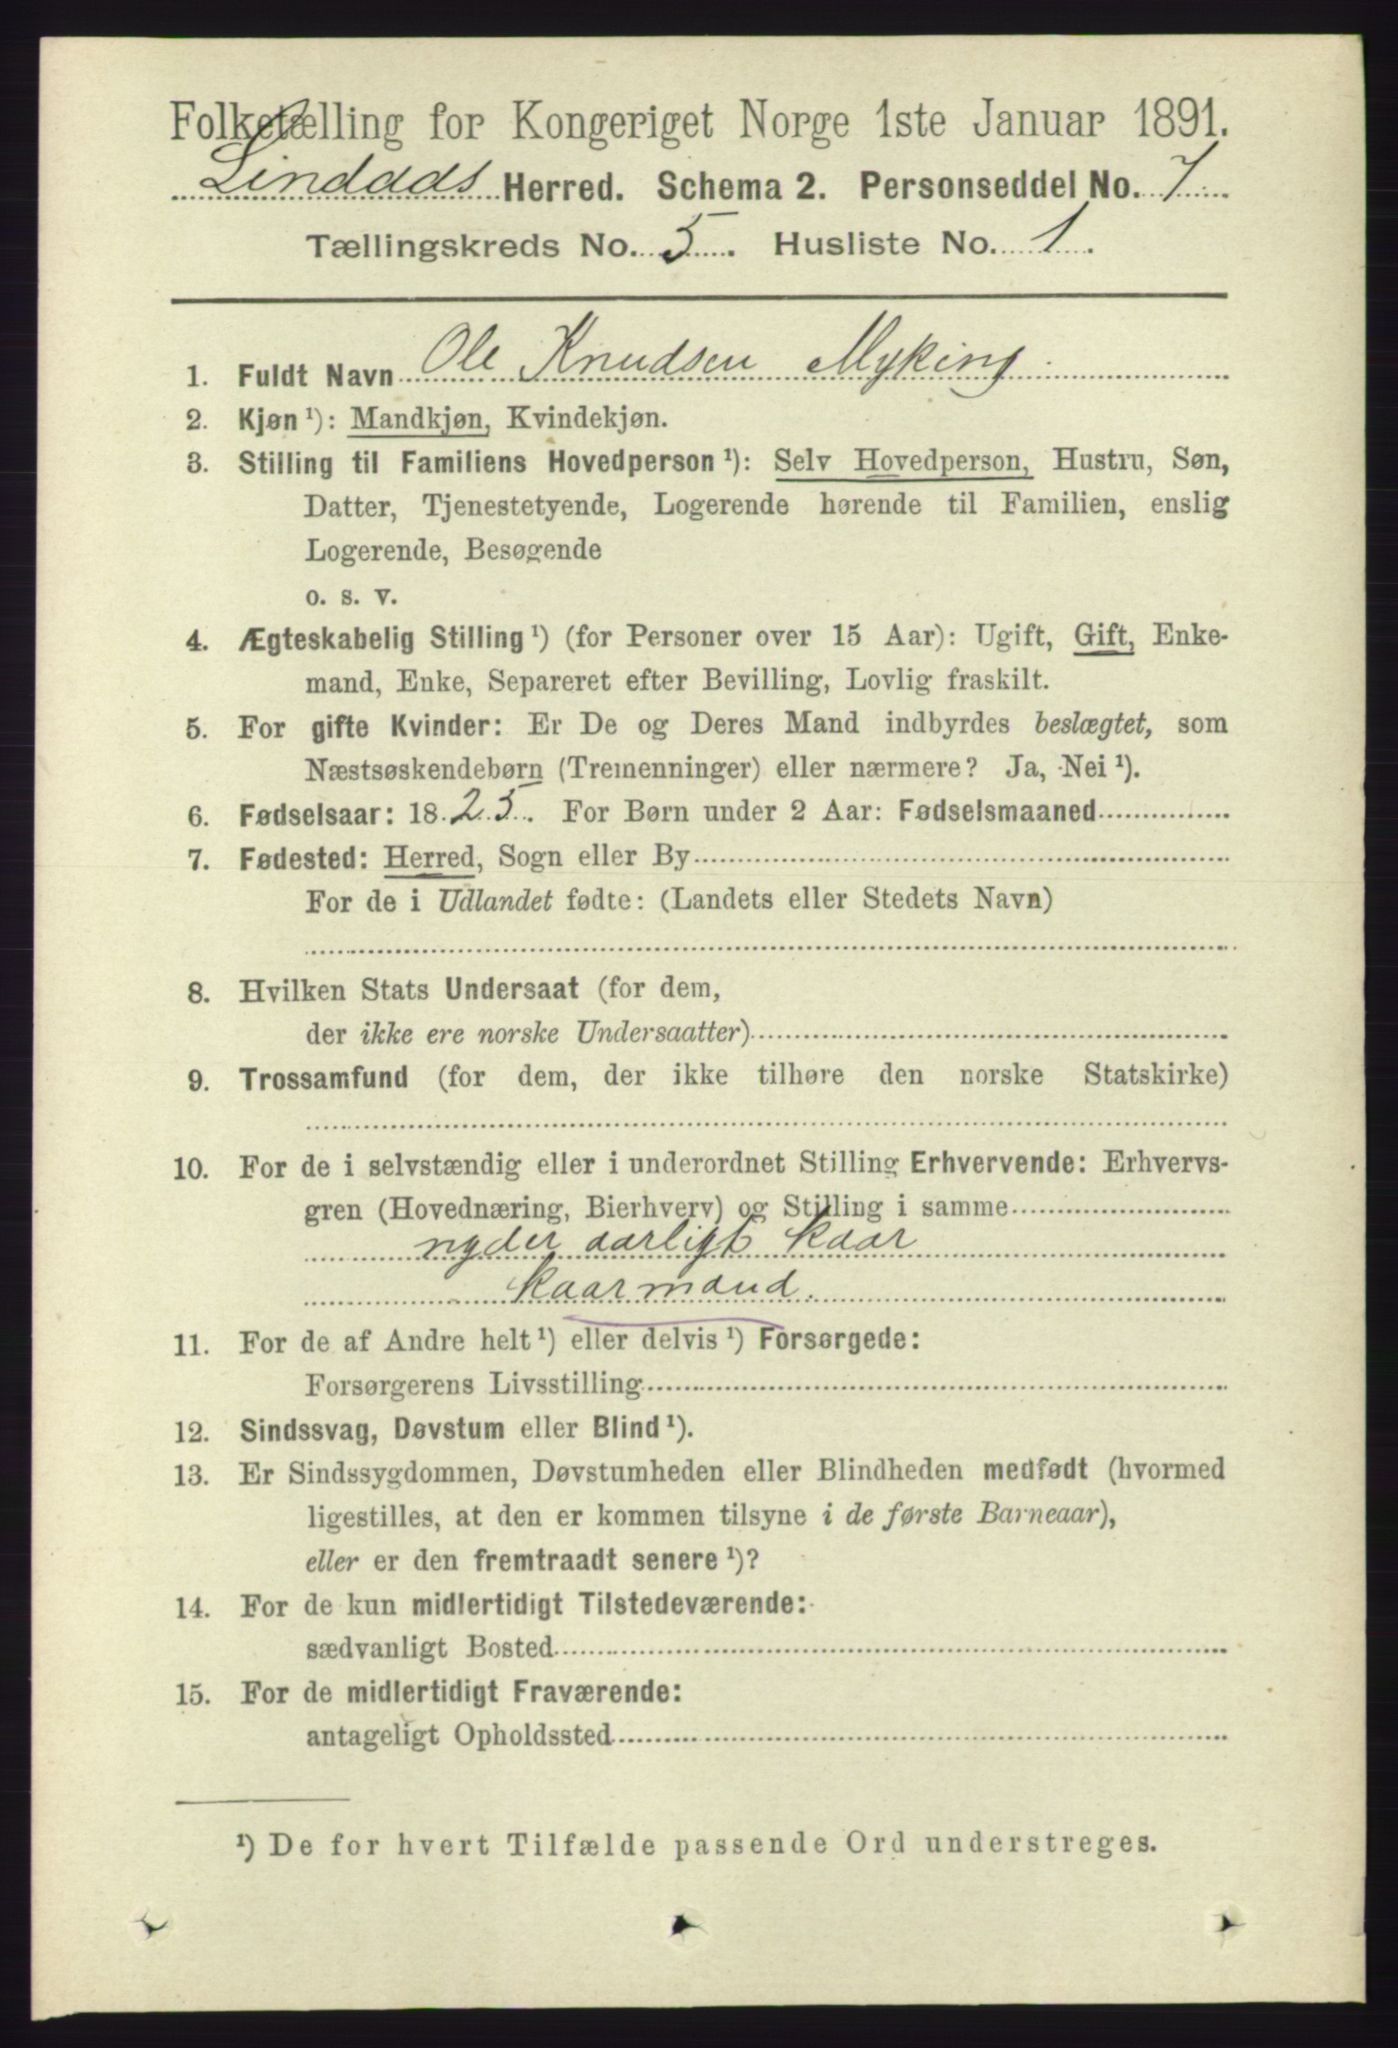 Folketælling for Kongeriget Norge 1ste Januar 1891.
Lindaas Herred. Schema 2. Personseddel No. 7
Tællingskreds No. 5. Husliste No. 1.
1. Fuldt Navn Ole Knudsen Myking
2. Kjøn ¹): Mandkjøn, Kvindekjøn.
3. Stilling til Familiens Hovedperson ¹): Selv Hovedperson, Hustru, Søn,
Datter, Tjenestetyende, Logerende hørende til Familien, enslig
Logerende, Besøgende
o. s. v.
4. Ægteskabelig Stilling ¹) (for Personer over 15 Aar): Ugift, Gift, Enke-
mand, Enke, Separeret efter Bevilling, Lovlig fraskilt.
5. For gifte Kvinder: Er De og Deres Mand indbyrdes beslægtet, som
Næstsøskendebørn (Tremenninger) eller nærmere? Ja, Nei ¹).
6. Fødselsaar: 1825. For Børn under 2 Aar: Fødselsmaaned
7. Fødested: Herred, Sogn eller By
For de i Udlandet fødte: (Landets eller Stedets Navn)
8. Hvilken Stats Undersaat (for dem,
der ikke ere norske Undersaatter)
9. Trossamfund (for dem, der ikke tilhøre den norske Statskirke)
10. For de i selvstændig eller i underordnet Stilling Erhvervende: Erhvervs-
gren (Hovednæring, Bierhverv) og Stilling i samme
nyder aarligt Kaar
Kaarmand.
11. For de af Andre helt ¹) eller delvis ¹) Forsørgede:
Forsørgerens Livsstilling
12. Sindssvag, Døvstum eller Blind ¹).
13. Er Sindssygdommen, Døvstumheden eller Blindheden medfødt (hvormed
ligestilles, at den er kommen tilsyne i de første Barneaar),
eller er den fremtraadt senere ¹)?
14. For de kun midlertidigt Tilstedeværende:
sædvanligt Bosted
15. For de midlertidigt Fraværende:
antageligt Opholdssted
¹) De for hvert Tilfælde passende Ord understreges.